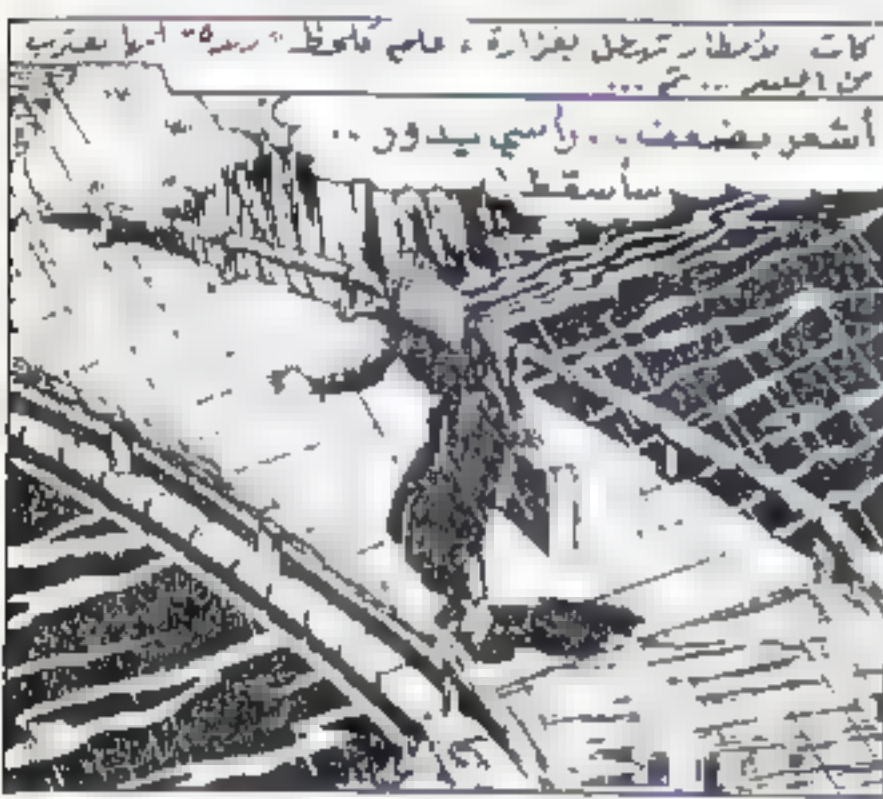 كانت الأمطار تهطل بغزارة ، فلم تلاحظ " " أنها تقترب
من الجسر .. ثم ...
أشعر بضعف .. رأسي يدور ..
سأسقط !